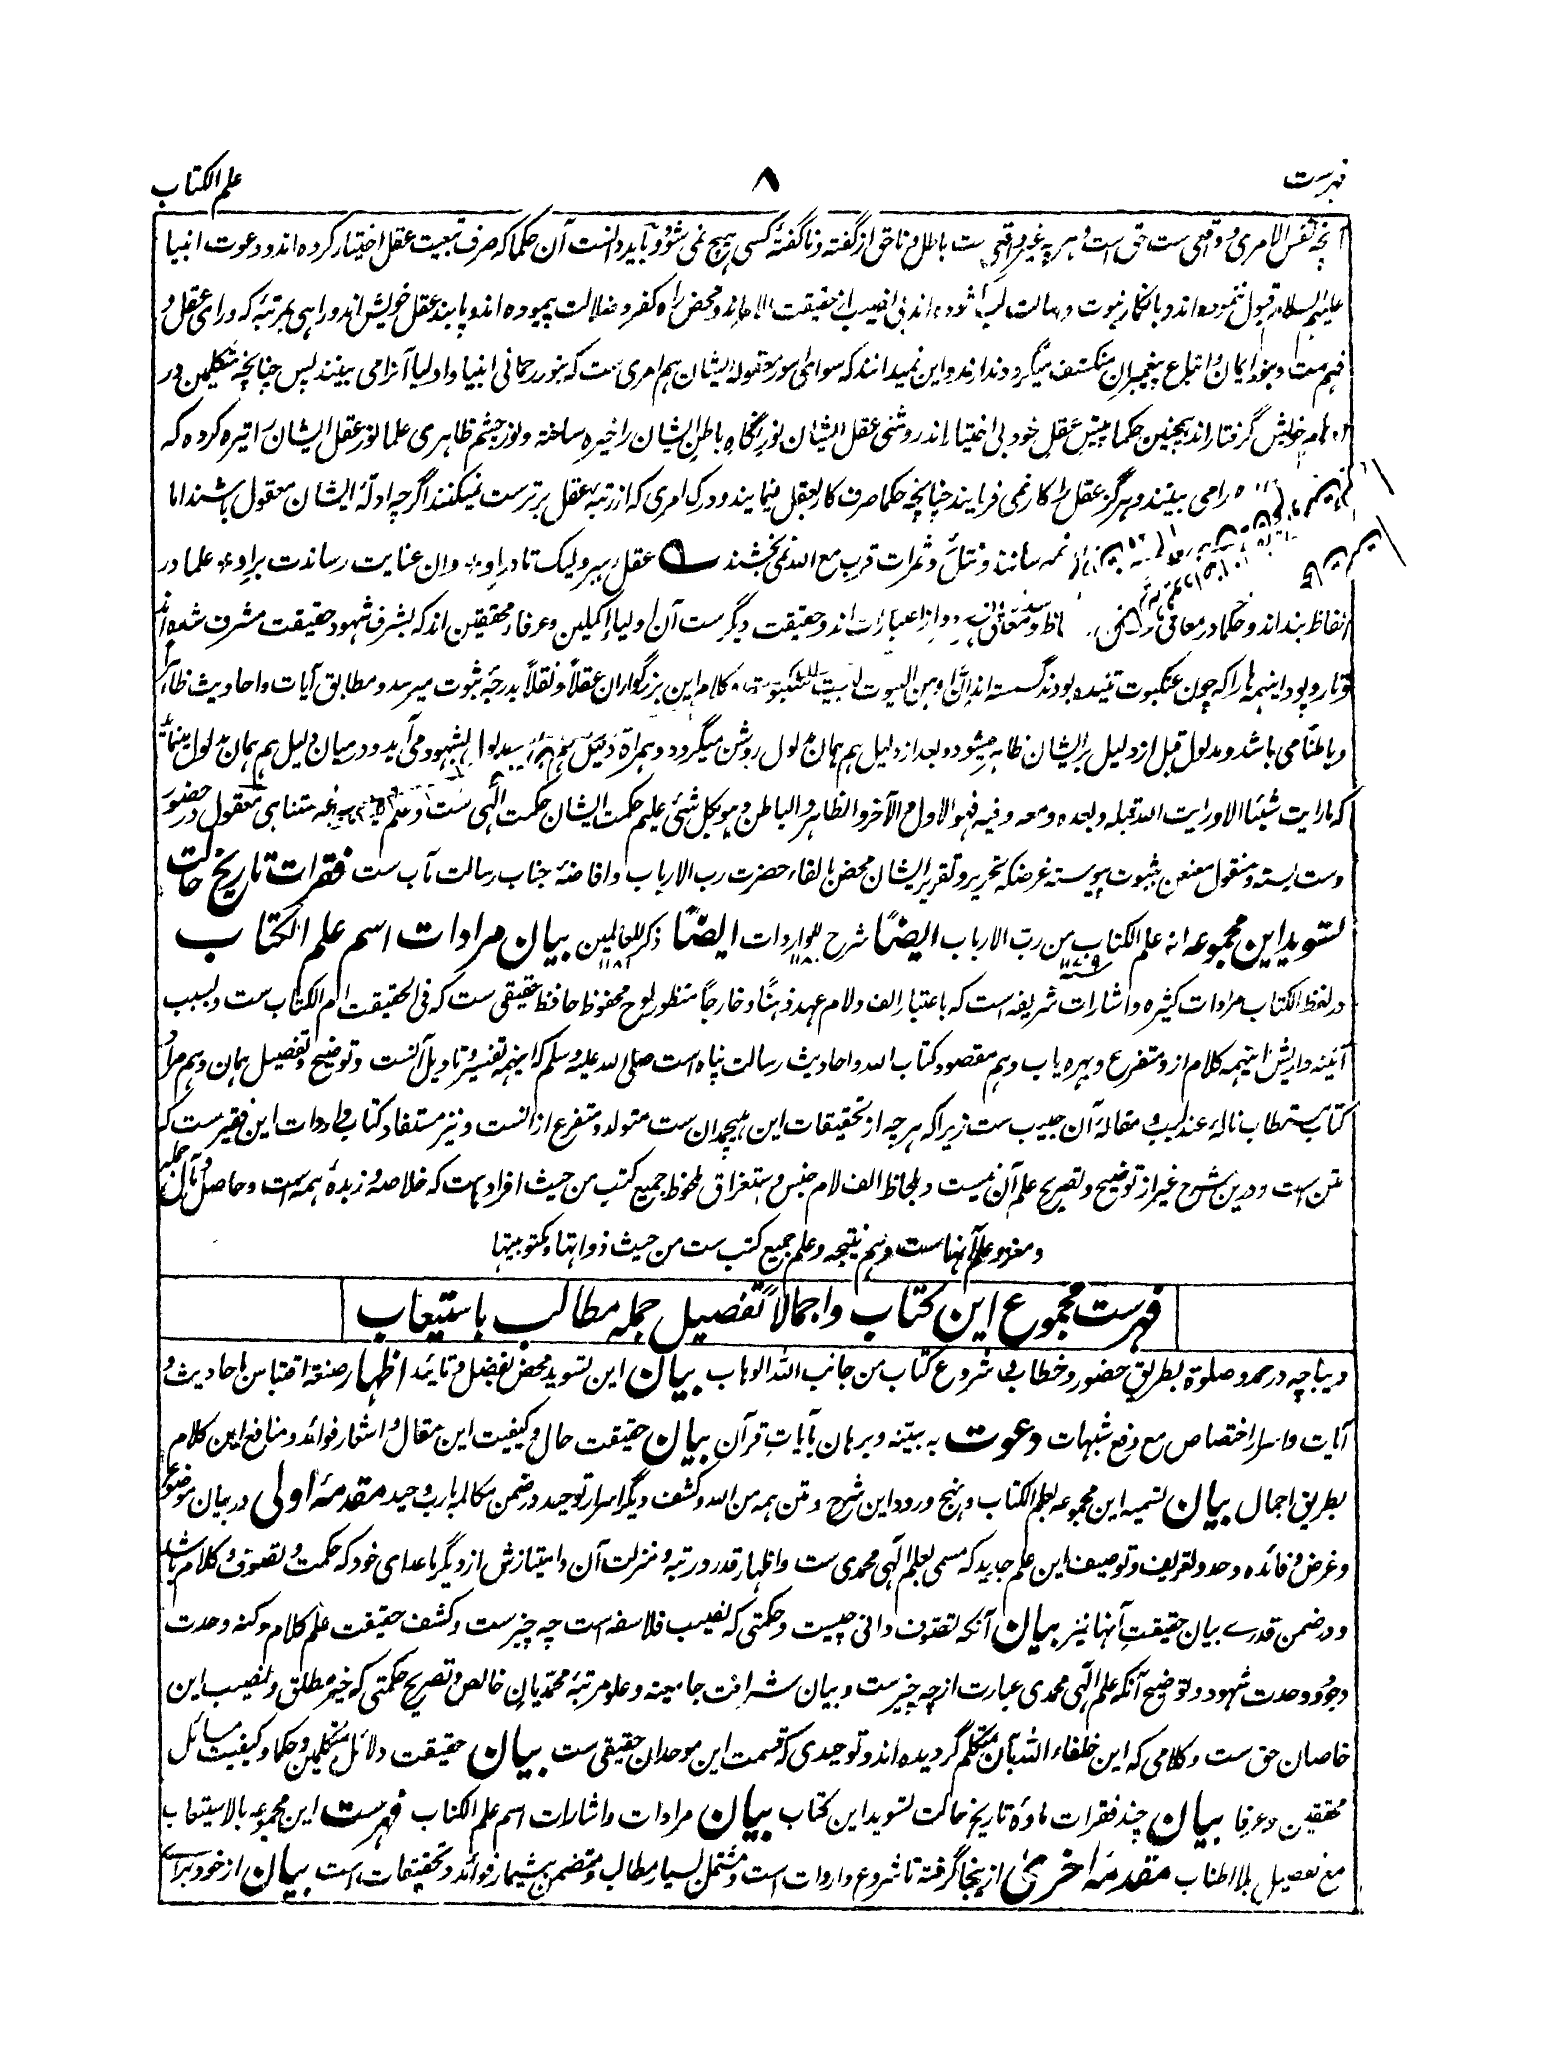 فهرست
۸
علم الکتاب
آنچه نفس الامری و واقعی ست حق است و هر چه غیر واقعی ست باطل و ناحق از گفته و ناگفتهٔ کسی هیچ نمی شود و باید دانست آن حکما که صرف تبعیت عقل اختیار کرده اند و دعوت انبیا
علیهم السلام قبول ننموده اند و بانکار نبوت و رسالت اند بی نصیب از حقیقت اند و محض راه کفر و ضلالت پیموده اند و پابند عقل خویش اند و راهی بمرتبه که ورای عقل و
فهم ست و بنور ایمان و اتباع پیغمبران منکشف میگردد ندارند و این نمیدانند که سوای امور معقولهٔ ایشان هم امری ست که بنور رحمانی انبیا و اولیا آنرا می بینند پس چنانچه متکلمین در
خویش گرفتار اند همچنین حکما پیش عقل خود بی اختیار اند روشنی عقل ایشان نور نگاه باطن ایشان را خیره ساخته و نور چشم ظاهری علما نور عقل ایشان را تیره کرده که
را می بینند و هرگز عقل را کار نمی فرمایند چنانچه حکما صرف کار بعقل مینمایند و درک امری که از رتبهٔ عقل برترست نمیکنند اگرچه ادلهٔ ایشان معقول باشند اما
نمی رسانند و نتائج و ثمرات قرب مع الله نمی بخشند عقل رهبر ولیک تا در او * وان عنایت رساندت بر او * علما در
الفاظ بند اند و حکما در معانی و از اعتبارات اند و حقیقت دیگر ست آن اولیا اکملین و عرفاء محققین اند که بشرف شهود حقیقت مشرف شده اند
و تار و پود اینهمه را که چون عنکبوت تنیده بودند گسسته اند ان اوهن البیوت لبیت العنکبوت و کلام این بزرگواران عقلاً و نقلاً بدرجهٔ ثبوت میرسد و مطابق آیات و احادیث ظاهراً
و باطناً می باشد و مدلول قبل از دلیل بر ایشان ظاهر میشود و بعد از دلیل هم همان مدلول روشن میگردد و همراه دلیل هم مدلول بشهود می آید و در میان دلیل هم همان مدلول مینماید
که ما رایت شیئا الا و رایت الله قبله و بعده و معه و فیه فهو الاول و الآخر و الظاهر و الباطن و هو بکل شئی علیم حکمت ایشان حکمت الٓهی ست و علم متناهی معقول در حضور
دست بسته و منقول معنعن بثبوت پیوسته غرضکه تحریر و تقریر ایشان محض بالقاء حضرت رب الارباب و افاضهٔ جناب رسالت مآب ست فقرات تاریخ حالت
تسوید این مجموعه انه علم الکتاب من رب الارباب ایضاً شرح للواردات ایضاً ذکر للعالمین بیان مرادات اسم علم الکتاب
در لفظ الکتاب مرادات کثیره و اشارات شریفه است که باعتبار الف و لام عهد ذهناً و خارجاً منظور لوح محفوظ حافظ حقیقی ست که فی الحقیقت ام الکتاب ست و بسبب
آئینه داریش اینهمه کلام ازو متفرع و بهره یاب و هم مقصود کتاب الله و احادیث رسالت پناه است صلی الله علیه و سلم که اینهمه تفسیر و تاویل آنست و توضیح و تفصیل همان و هم مراد
کتاب مستطاب نالهٔ عندلیب و مقالهٔ آن حبیب ست زیرا که هر چه از تحقیقات این هیچمدان ست متولد و متفرع از انست و نیز مستفاد کتاب واردات این فقیر ست که
متن است و درین شرح غیر از توضیح و تصریح علم آن نیست و بلحاظ الف لام جنس و استغراق ملحوظ جمیع کتب من حیث افراد است که خلاصه و زبدهٔ همه است و حاصل و مآل جمله
و مغز و علم آنهاست و هم نتیجه و علم جمیع کتب ست من حیث ذواتها و مکتوبیتها
فهرست مجموع این کتاب و اجمالاً تفصیل جمله مطالب باستیعاب
دیباچه در حمد و صلوة بطریق حضور و خطاب فی شروع کتاب من جانب الله الوهاب بیان این تسوید محض بفضل و تائید اظهار صنعة اقتباس باحادیث و
آیات و اسرار اختصاص مع رفع شبهات دعوت به بینه و برهان بآیات قرآن بیان حقیقت حال و کیفیت این مقال و اشعار فوائد و منافع این کلام
بطریق اجمال بیان تسمیه این مجموعه بعلم الکتاب و نهج ورود این شرح و متن همه من الله و کشف دیگر اسرار توحید در ضمن مکالمه بارب وحید مقدمهٔ اولی در بیان موضوع
و غرض و فائده و حد و تعریف و توصیف این علم جدید که مسمی بعلم الٓهی محمدی ست و اظهار قدر و رتبه و منزلت آن و امتیازش از دیگر ماعدای خود که حکمت و تصوف و کلام باشد
و در ضمن قدرے بیان حقیقت آنها نیز بیان آنکه تصوف دانی چیست و حکمتی که نصیب فلاسفه است چه چیز ست و کشف حقیقت علم کلام و کنه وحدت
وجود و وحدت شهود و توضیح آنکه علم الٓهی محمدی عبارت از چه چیز ست و بیان شرافت جامعیته و علو مرتبهٔ محمدیان خالص و تصریح حکمتی که خیر مطلق و نصیب این
خاصان حق ست و کلامی که این خلفاء الله بآن متکلم گردیده اند و توحیدی که قسمت این موحدان حقیقی ست بیان حقیقت دلائل متکلمین و حکما و کیفیت مسائل
محققین و عرفا بیان چند فقرات مادهٔ تاریخ حالت تسوید این کتاب بیان مرادات و اشارات اسم علم الکتاب فهرست این مجموعه بالاستیعاب
مع تفصیل بلا اطناب مقدمهٔ اخریٰ از ینجا گرفته تا شروع واردات است و مشتمل بسیار مطالب و متضمن بیشمار فوائد و تحقیقات است بیان از خود برائے